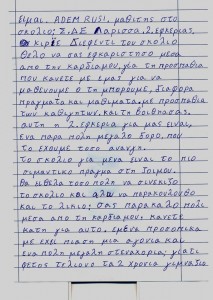 Είμαι, ADEM RUSI, μαθιτης στο
σκολιο; Σ.Δ.Ε Λαρισσα, 2, ευκερίας,
κιριε Διεφεντι του σκολιο
θελο να σας ευκαριστησο μεσα
απο την καρδιαμου, για τη προσπαθια
που κανετε με εμας για να
μαθενουμε ο τη μπορουμε, διαφορα
πραγματα και μαθηματα, με προσπαθια
των καθηγητων, και τη βοιθιασας,
αυτη η 2, ευκερια για μας ειναι,
ενα παρα πολη μεγαλε δορο, που
το εχουμε τοσο αναγη.
Το σκολιο για μενα ειναι το πιο
σιμαντικο πραγμα στη ζοιμου.
θα ηθελα τοσο πολη να συνεχιζο
το σκολιο και αλλω να παρακολουθο
και το λικιο; σας παρακαλο πολι
μεσα απο τη καρδιαμου, κανετε
κατη για αυτο. εμενα προσοπικα
με εχει πιαση μια αγονια και
ενα πολη μεγαλη στεναχορια; γιατι
φετος τελιονο τα 2 χρονια γυμνασιο